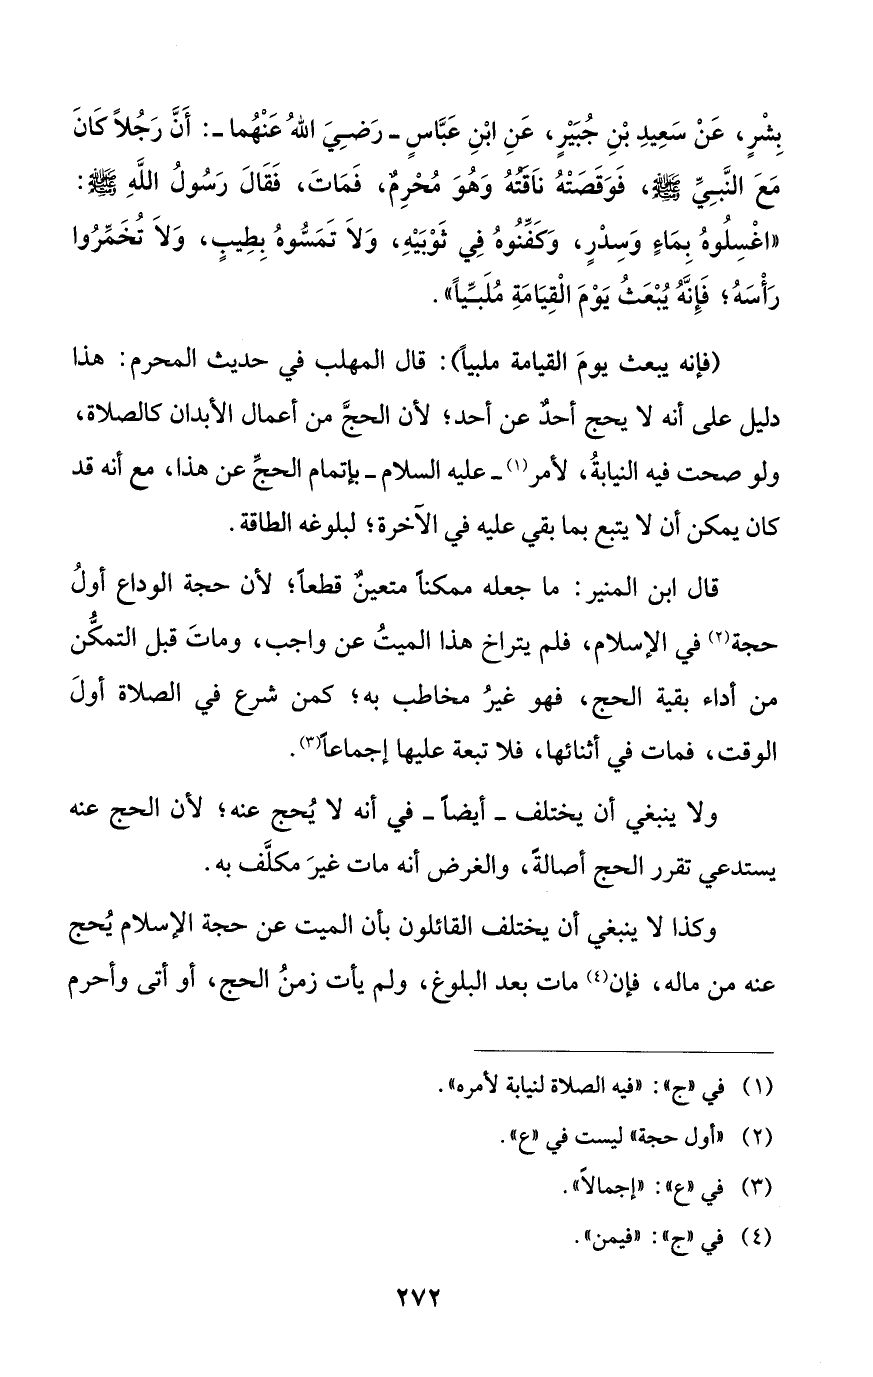 بِشْرٍ، عَنْ سَعِيدِ بْنِ جُبَيْرٍ، عَنِ ابْنِ عَبَّاسٍ ـ رَضِيَ اللهُ عَنْهُما ـ: أَنَّ رَجُلاً كَانَ
مَعَ النَّبِيِّ ﷺ، فَوَقَصَتْهُ نَاقَتُهُ وَهُوَ مُحْرِمٌ، فَمَاتَ، فَقَالَ رَسُولُ اللَّهِ ﷺ:
«اغْسِلُوهُ بِمَاءٍ وَسِدْرٍ، وَكَفِّنُوهُ فِي ثَوْبَيْهِ، وَلاَ تَمَسُّوهُ بِطِيبٍ، وَلاَ تُخَمِّرُوا
رَأْسَهُ؛ فَإِنَّهُ يُبْعَثُ يَوْمَ الْقِيَامَةِ مُلَبِّياً».
(فإنه يبعث يومَ القيامة ملبياً): قال المهلب في حديث المحرم: هذا
دليل على أنه لا يحج أحدٌ عن أحد؛ لأن الحجَّ من أعمال الأبدان كالصلاة،
ولو صحت فيه النيابةُ، لأمر(١) ـ عليه السلام ـ بإتمام الحجِّ عن هذا، مع أنه قد
كان يمكن أن لا يتبع بما بقي عليه في الآخرة؛ لبلوغه الطاقة.
قال ابن المنير: ما جعله ممكناً متعينٌ قطعاً؛ لأن حجة الوداع أولُ
حجة(٢) في الإسلام، فلم يتراخ هذا الميتُ عن واجب، وماتَ قبل التمكُّن
من أداء بقية الحج، فهو غيرُ مخاطب به؛ كمن شرع في الصلاة أولَ
الوقت، فمات في أثنائها، فلا تبعة عليها إجماعاً(٣).
ولا ينبغي أن يختلف ـ أيضاً ـ في أنه لا يُحج عنه؛ لأن الحج عنه
يستدعي تقرر الحج أصالةً، والغرض أنه مات غيرَ مكلَّف به.
وكذا لا ينبغي أن يختلف القائلون بأن الميت عن حجة الإسلام يُحج
عنه من ماله، فإن(٤) مات بعد البلوغ، ولم يأت زمنُ الحج، أو أتى وأحرم
(١) في «ج»: «فيه الصلاة لنيابة لأمره».
(٢) «أول حجة» ليست في «ع».
(٣) في «ع»: «إجمالاً».
(٤) في «ج»: «فيمن».
٢٧٢